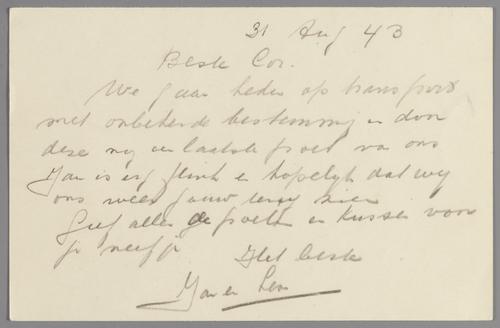 31 Aug 43
Beste Cor.
We gaan heden op transport
met onbekende bestemming en door
deze nog een laatste groet van ons
Jan is erg flink en hopelijk dat wij
ons weer gauw terug zien
Geef alles de groeten en kussen voor
je neefje
Het beste
Jan en